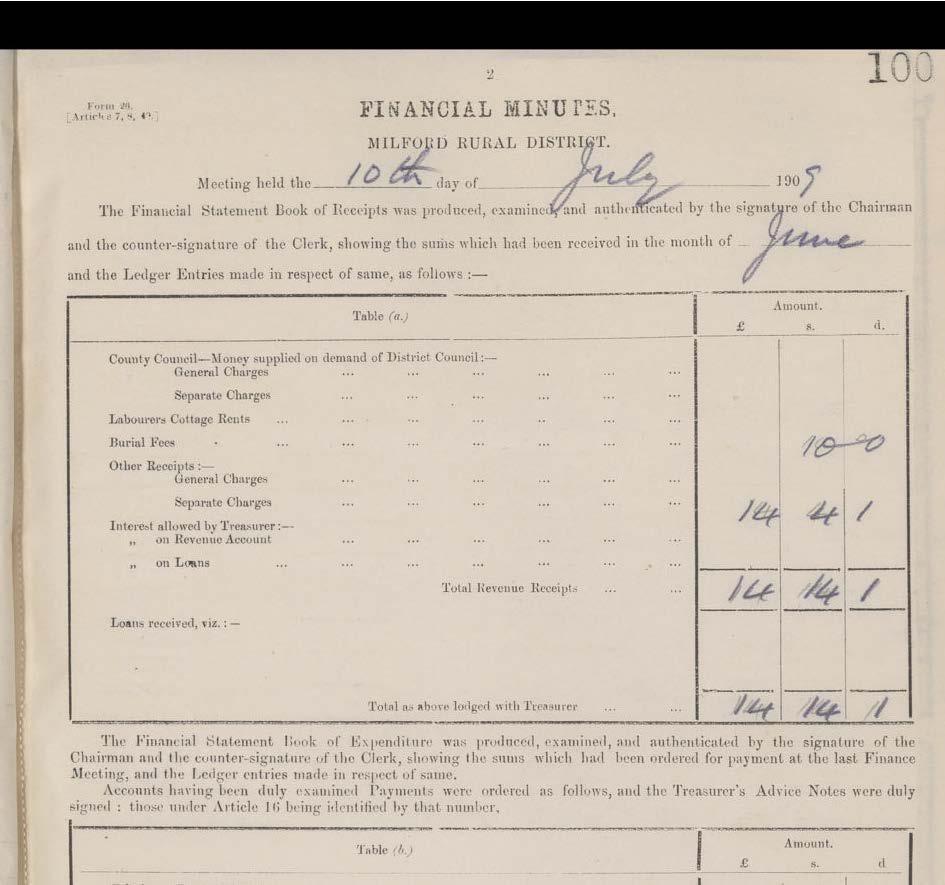 2
100
Form 26.
[Articles 7, 8, 49.]
FINANCIAL MINUTES.
MILFORD RURAL DISTRICT.
Meeting held the 10th day of July 1909
The Financial Statement Book of Receipts was produced, examined, and authenticated by the signature of the Chairman
and the counter-signature of the Clerk, showing the sums which had been received in the month of June
and the Ledger Entries made in respect of same, as follows :—
Table (a.) Amount.
£ s. d.
County Council—Money supplied on demand of District Council:—
General Charges ... ... ... ... ... ...
Separate Charges ... ... ... ... ... ...
Labourers Cottage Rents ... ... ... ... ... ... ...
Burial Fees ... ... ... ... ... ... ... 10 0
Other Receipts :—
General Charges ... ... ... ... ... ...
Separate Charges ... ... ... ... ... ... 14 4 1
Interest allowed by Treasurer :—
„ on Revenue Account ... ... ... ... ... ...
„ on Loans ... ... ... ... ... ... ...
Total Revenue Receipts ... ... 14 14 1
Loans received, viz. : —
Total as above lodged with Treasurer ... ... 14 14 1
The Financial Statement Book of Expenditure was produced, examined, and authenticated by the signature of the
Chairman and the counter-signature of the Clerk, showing the sums which had been ordered for payment at the last Finance
Meeting, and the Ledger entries made in respect of same.
Accounts having been duly examined Payments were ordered as follows, and the Treasurer's Advice Notes were duly
signed : those under Article 16 being identified by that number.
Table (b.) Amount.
£ s. d